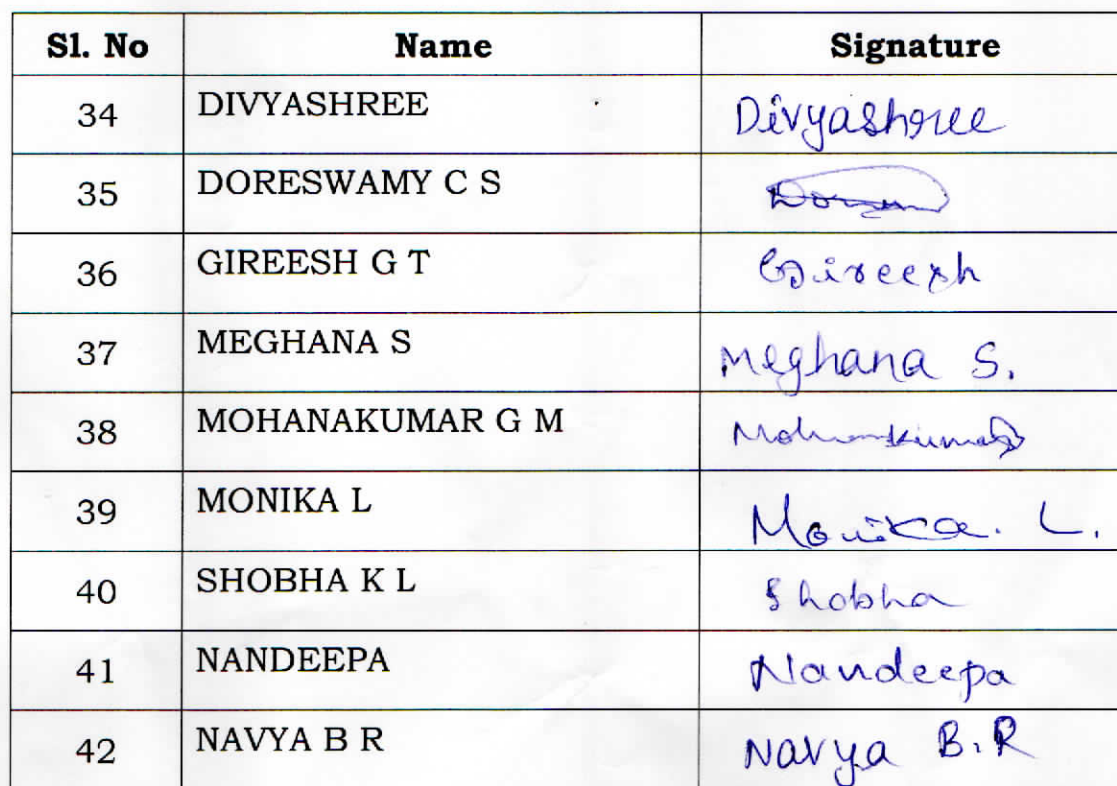 Sl. No Name Signature
34 DIVYASHREE Divyashree
35 DORESWAMY C S
36 GIREESH G T Gireesh
37 MEGHANA S Meghana S.
38 MOHANAKUMAR G M Mohankumar
39 MONIKA L Monika. L.
40 SHOBHA K L Shobha
41 NANDEEPA Nandeepa
42 NAVYA B R Navya B.R